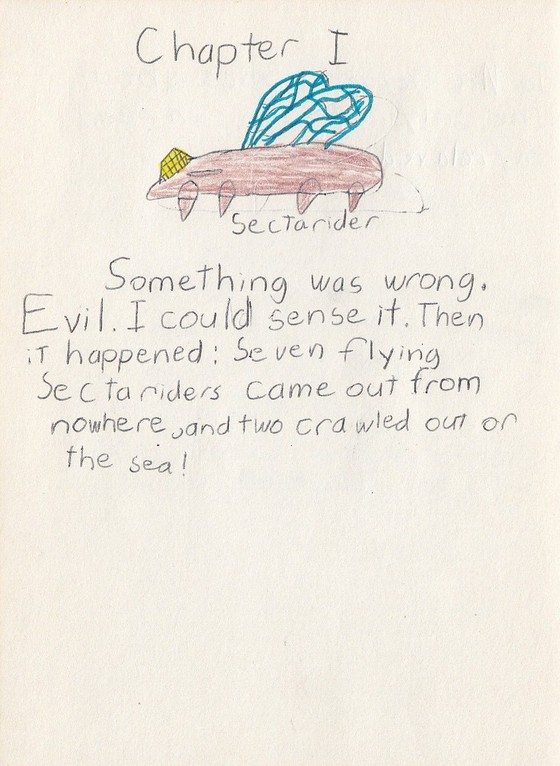 Chapter I
Sectarider
Something was wrong.
Evil. I could sense it. Then
it happened: Seven flying
Sectariders came out from
nowhere, and two crawled out or
the sea!